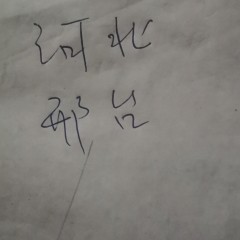 河北
邢台